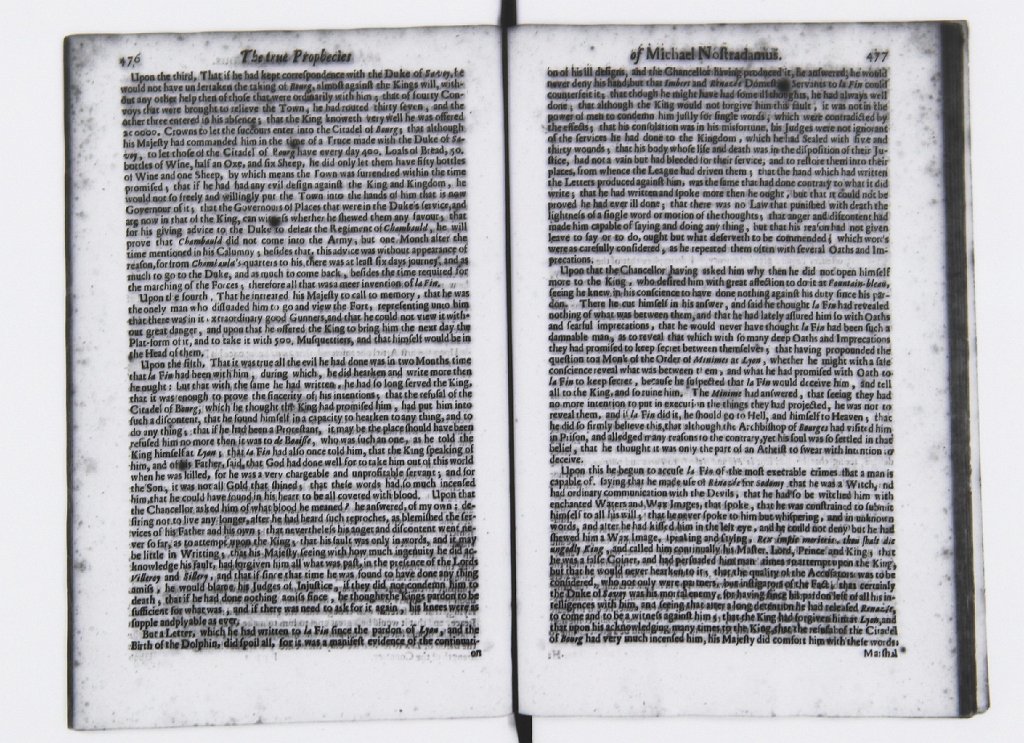 476
The true Prophecies
Upon the third, That if he had kept correspondence with the Duke of Savoy, he
would not have undertaken the taking of Bourg, almost against the Kings will, with-
out any other help then of those that were ordinarily with him; that of fourty Con-
voys that were brought to relieve the Town, he had routed thirty seven, and the
other three entered in his absence; that the King knoweth very well he was offered
Crowns to let the succours enter into the Citadel of Bourg; that although
his Majesty had commanded him in the time of a Truce made with the Duke of Sa-
voy, to let those of the Citadel of Bourg have every day 400. Loafs of Bread, 50.
bottles of Wine, half an Oxe, and six Sheep, he did only let them have fifty bottles
of Wine and one Sheep, by which means the Town was surrendred within the time
promised; that if he had had any evil design against the King and Kingdom, he
would not so freely and willingly put the Town into the hands of him that is now
Governour of it; that the Governours of Places that were in the Duke's service, and
are now in that of the King, can witness whether he shewed them any favour; that
for his giving advice to the Duke to defeat the Regiment of Chambauld, he will
prove that Chambauld did not come into the Army, but one Month after the
time mentioned in his Calumny; besides that, this advice was without appearance of
reason, for from Chambauld's quarters to his, there was at least six days journey, and as
much to go to the Duke, and as much to come back, besides the time required for
the marching of the Forces; therefore all that was a meer invention of la Fin.
Upon the fourth, That he intreated his Majesty to call to memory, that he was
the onely man who dissuaded him to go and view the Fort, representing unto him
that there was in it extraordinary good Gunners, and that he could not view it with-
out great danger, and upon that he offered the King to bring him the next day the
Plat-form of it, and to take it with 500. Musquettiers, and that himself would be in
the Head of them.
Upon the fifth, That it was true all the evil he had done was in two Months time
that la Fin had been with him, during which, he did hearken and write more then
he ought: but that with the same he had written, he had so long served the King,
that it was enough to prove the sincerity of his intentions; that the refusal of the
Citadel of Bourg, which he thought the King had promised him, had put him into
such a discontent, that he found himself in a capacity to hearken to any thing, and to
do any thing; that if he had been a Protestant, it may be the place should have been
refused him no more then it was to de Boesse, who was such an one, as he told the
King himself at Lyon; that la Fin had also once told him, that the King speaking of
him, and of his Father, said, that God had done well for to take him out of this world
when he was killed, for he was a very chargeable and unprofitable servant; and for
the Son, it was not all Gold that shined; that these words had so much incensed
him, that he could have found in his heart to be all covered with blood. Upon that
the Chancellor asked him of what blood he meaned? he answered, of my own: de-
siring not to live any longer, after he had heard such reproches, as blemished the ser-
vices of his Father and his own; that nevertheless his anger and discontent went ne-
ver so far, as to attempt upon the King; that his fault was only in words, and it may
be little in Writting; that his Majesty seeing with how much ingenuity he did ac-
knowledge his fault, had forgiven him all what was past, in the presence of the Lords
Villeroy and Sillery, and that if since that time he was found to have done any thing
amiss, he would blame his Judges of Injustice, if they did not condemn him to
death; that if he had done nothing amiss since, he thought the Kings pardon to be
sufficient for what was; and if there was need to ask for it again, his knees were as
supple and plyable as ever.
But a Letter, which he had written to la Fin since the pardon of Lyon, and the
Birth of the Dolphin, did spoil all, for it was a manifest evidence of the continuati-
on
of Michael Nostradamus.
477
on of his ill designs, and the Chancellor having produced it, he answered; he would
never deny his hand, but that Imbert and Renazé Domestick Servants to la Fin could
counterfeit it, that though he might have had some ill thoughts, he had always well
done; that although the King would not forgive him this fault, it was not in the
power of men to condemn him justly for single words, which were contradicted by
the effects; that his consolation was in his misfortune, his Judges were not ignorant
of the services he had done to the Kingdom, which he had Sealed with five and
thirty wounds; that his body whose life and death was in the disposition of their Ju-
stice, had not a vain but had bleeded for their service, and to restore them into their
places, from whence the League had driven them; that the hand which had written
the Letters produced against him, was the same that had done contrary to what it did
write; that he had written and spoke more then he ought, but that it could not be
proved he had ever ill done; that there was no Law that punished with death the
lightness of a single word or motion of the thoughts; that anger and discontent had
made him capable of saying and doing any thing, but that his reason had not given
leave to say or to do, ought but what deserveth to be commended; which words
were as carefully considered, as he repeated them often with several Oaths and Im-
precations.
Upon that the Chancellor having asked him why then he did not open himself
more to the King, who desired him with great affection to do it at Fountain-bleau,
seeing he knew in his conscience to have done nothing against his duty since his par-
don. There he cut himself in his answer, and said he thought la Fin had revealed
nothing of what was between them, and that he had lately assured him so with Oaths
and fearful imprecations, that he would never have thought la Fin had been such a
damnable man, as to reveal that which with so many deep Oaths and Imprecations
they had promised to keep secret between themselves; that having propounded the
question to a Monk of the Order of Minimes at Lyon, whether he might with a safe
conscience reveal what was between them, and what he had promised with Oath to
la Fin to keep secret, because he suspected that la Fin would deceive him, and tell
all to the King, and so ruine him. The Minime had answered, that seeing they had
no more intention to put in execution the things they had projected, he was not to
reveal them, and if la Fin did it, he should go to Hell, and himself to Heaven; that
he did so firmly believe this, that although the Archbishop of Bourges had visited him
in Prison, and alledged many reasons to the contrary, yet his soul was so settled in that
belief, that he thought it was only the part of an Atheist to swear with intention to
deceive.
Upon this he began to accuse la Fin of the most execrable crimes that a man is
capable of, saying that he made use of Renazé for Sodomy that he was a Witch, and
had ordinary communication with the Devils, that he had so be witched him with
enchanted Waters and Wax Images, that spoke, that he was constrained to submit
himself to all his will; that he never spoke to him but whispering, and in unknown
words, and after he had kissed him in the left eye, and he could not deny but he had
shewed him a Wax Image, speaking and saying, Rex impie morieris, thou shalt die
ungodly King, and called him continually his Master, Lord, Prince and King; that
he was a false Coiner, and had persuaded him many times to attempt upon the King,
but that he would never hearken to it; that the quality of the Accusators was to be
considered, who not only were partners, but instigators of the Fact; that certainly
the Duke of Savoy was his mortal enemy, for having since his pardon left off all his in-
telligences with him, and seeing that after a long detention he had released Renazé,
to come and to be a witness against him; that the King had forgiven him at Lyon, and
that upon his acknowledging many times to the King, that the refusal of the Citadel
of Bourg had very much incensed him, his Majesty did comfort him with these words,
Marshal